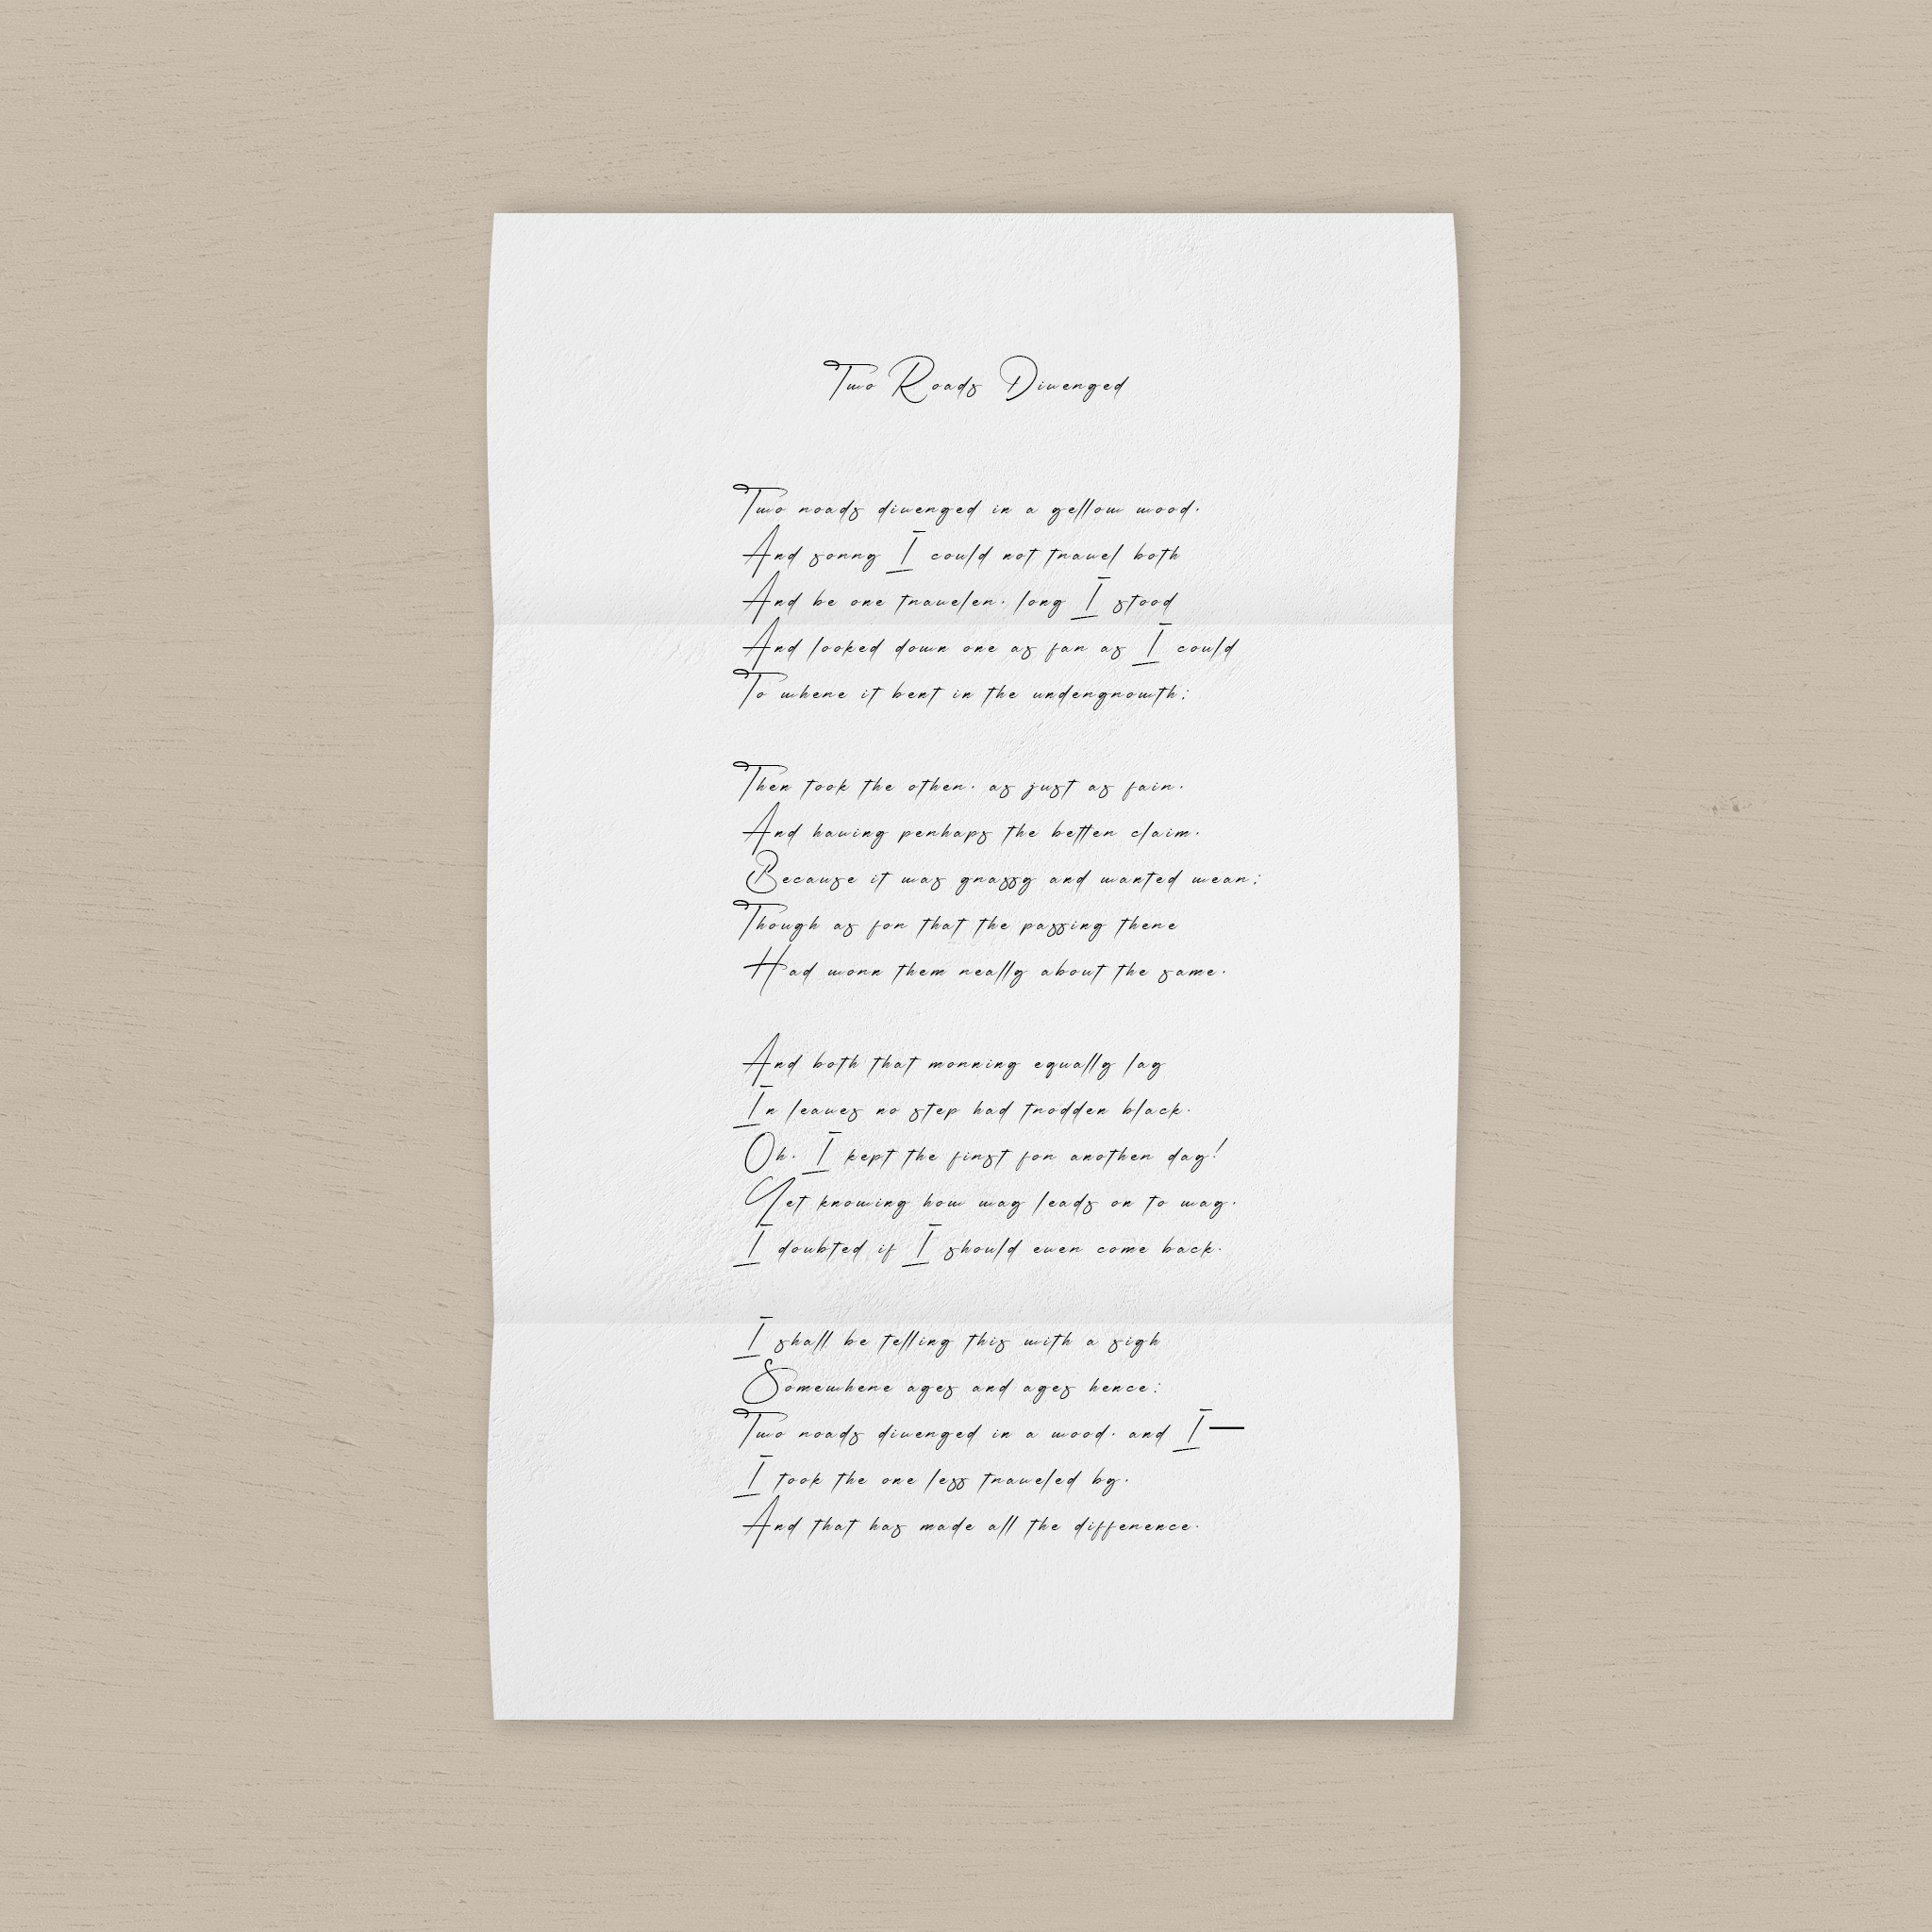 Two Roads Diverged
Two roads diverged in a yellow wood,
And sorry I could not travel both
And be one traveler, long I stood
And looked down one as far as I could
To where it bent in the undergrowth;
Then took the other, as just as fair,
And having perhaps the better claim,
Because it was grassy and wanted wear;
Though as for that the passing there
Had worn them really about the same,
And both that morning equally lay
In leaves no step had trodden black.
Oh, I kept the first for another day!
Yet knowing how way leads on to way,
I doubted if I should ever come back.
I shall be telling this with a sigh
Somewhere ages and ages hence:
Two roads diverged in a wood, and I—
I took the one less traveled by,
And that has made all the difference.